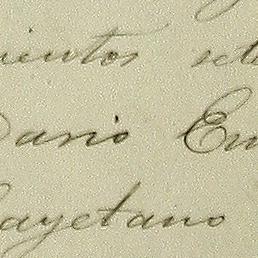 ientos sete
Dario Em
Cayetano